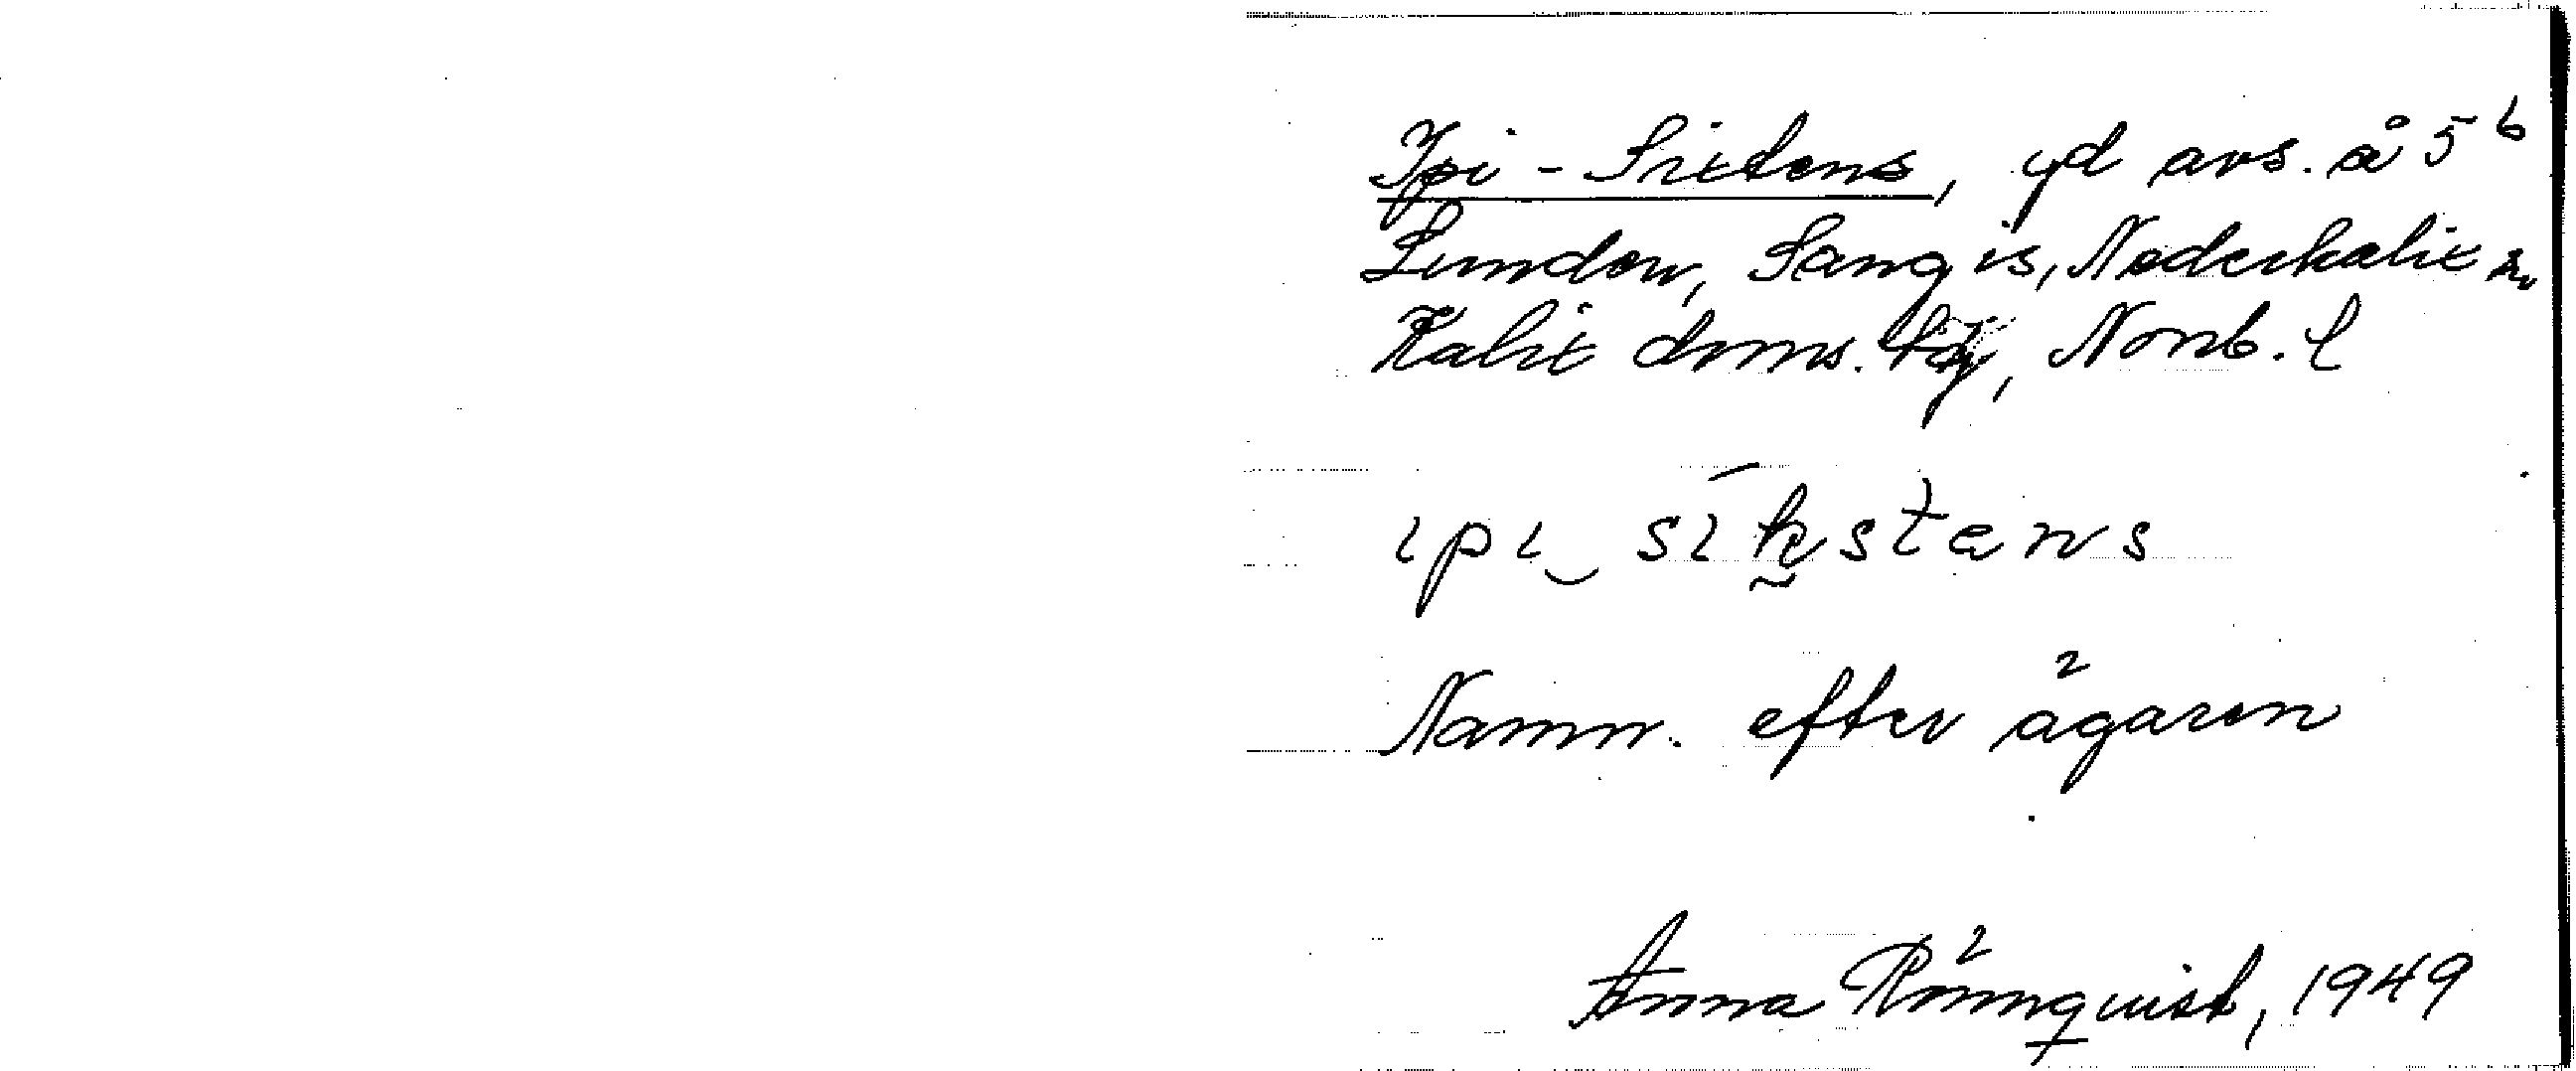 Ipi - Sixtens, gd avs. å 5⁶
Lunden, Sangis, Nederkalix sn
Kalix doms. tkg, Norrb. l
ipi‿sikstens
Namn. efter ägaren
Anna Rönnquist, 1949